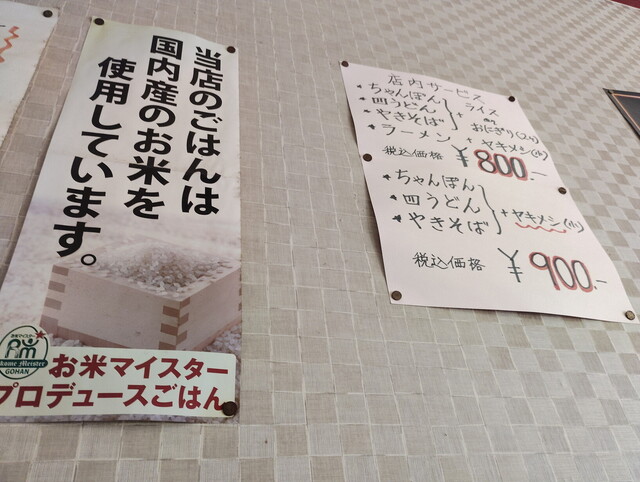 当店のごはんは
国内産のお米を
使用しています。
お米マイスター
プロデュースごはん
GOHAN
店内サービス
ちゃんぽん
皿うどん
やきそば
+ ライス
or
おにぎり(2ヶ)
ラーメン + ヤキメシ(小)
税込価格 ¥800.-
ちゃんぽん
皿うどん
やきそば
+ ヤキメシ(小)
税込価格 ¥900.-